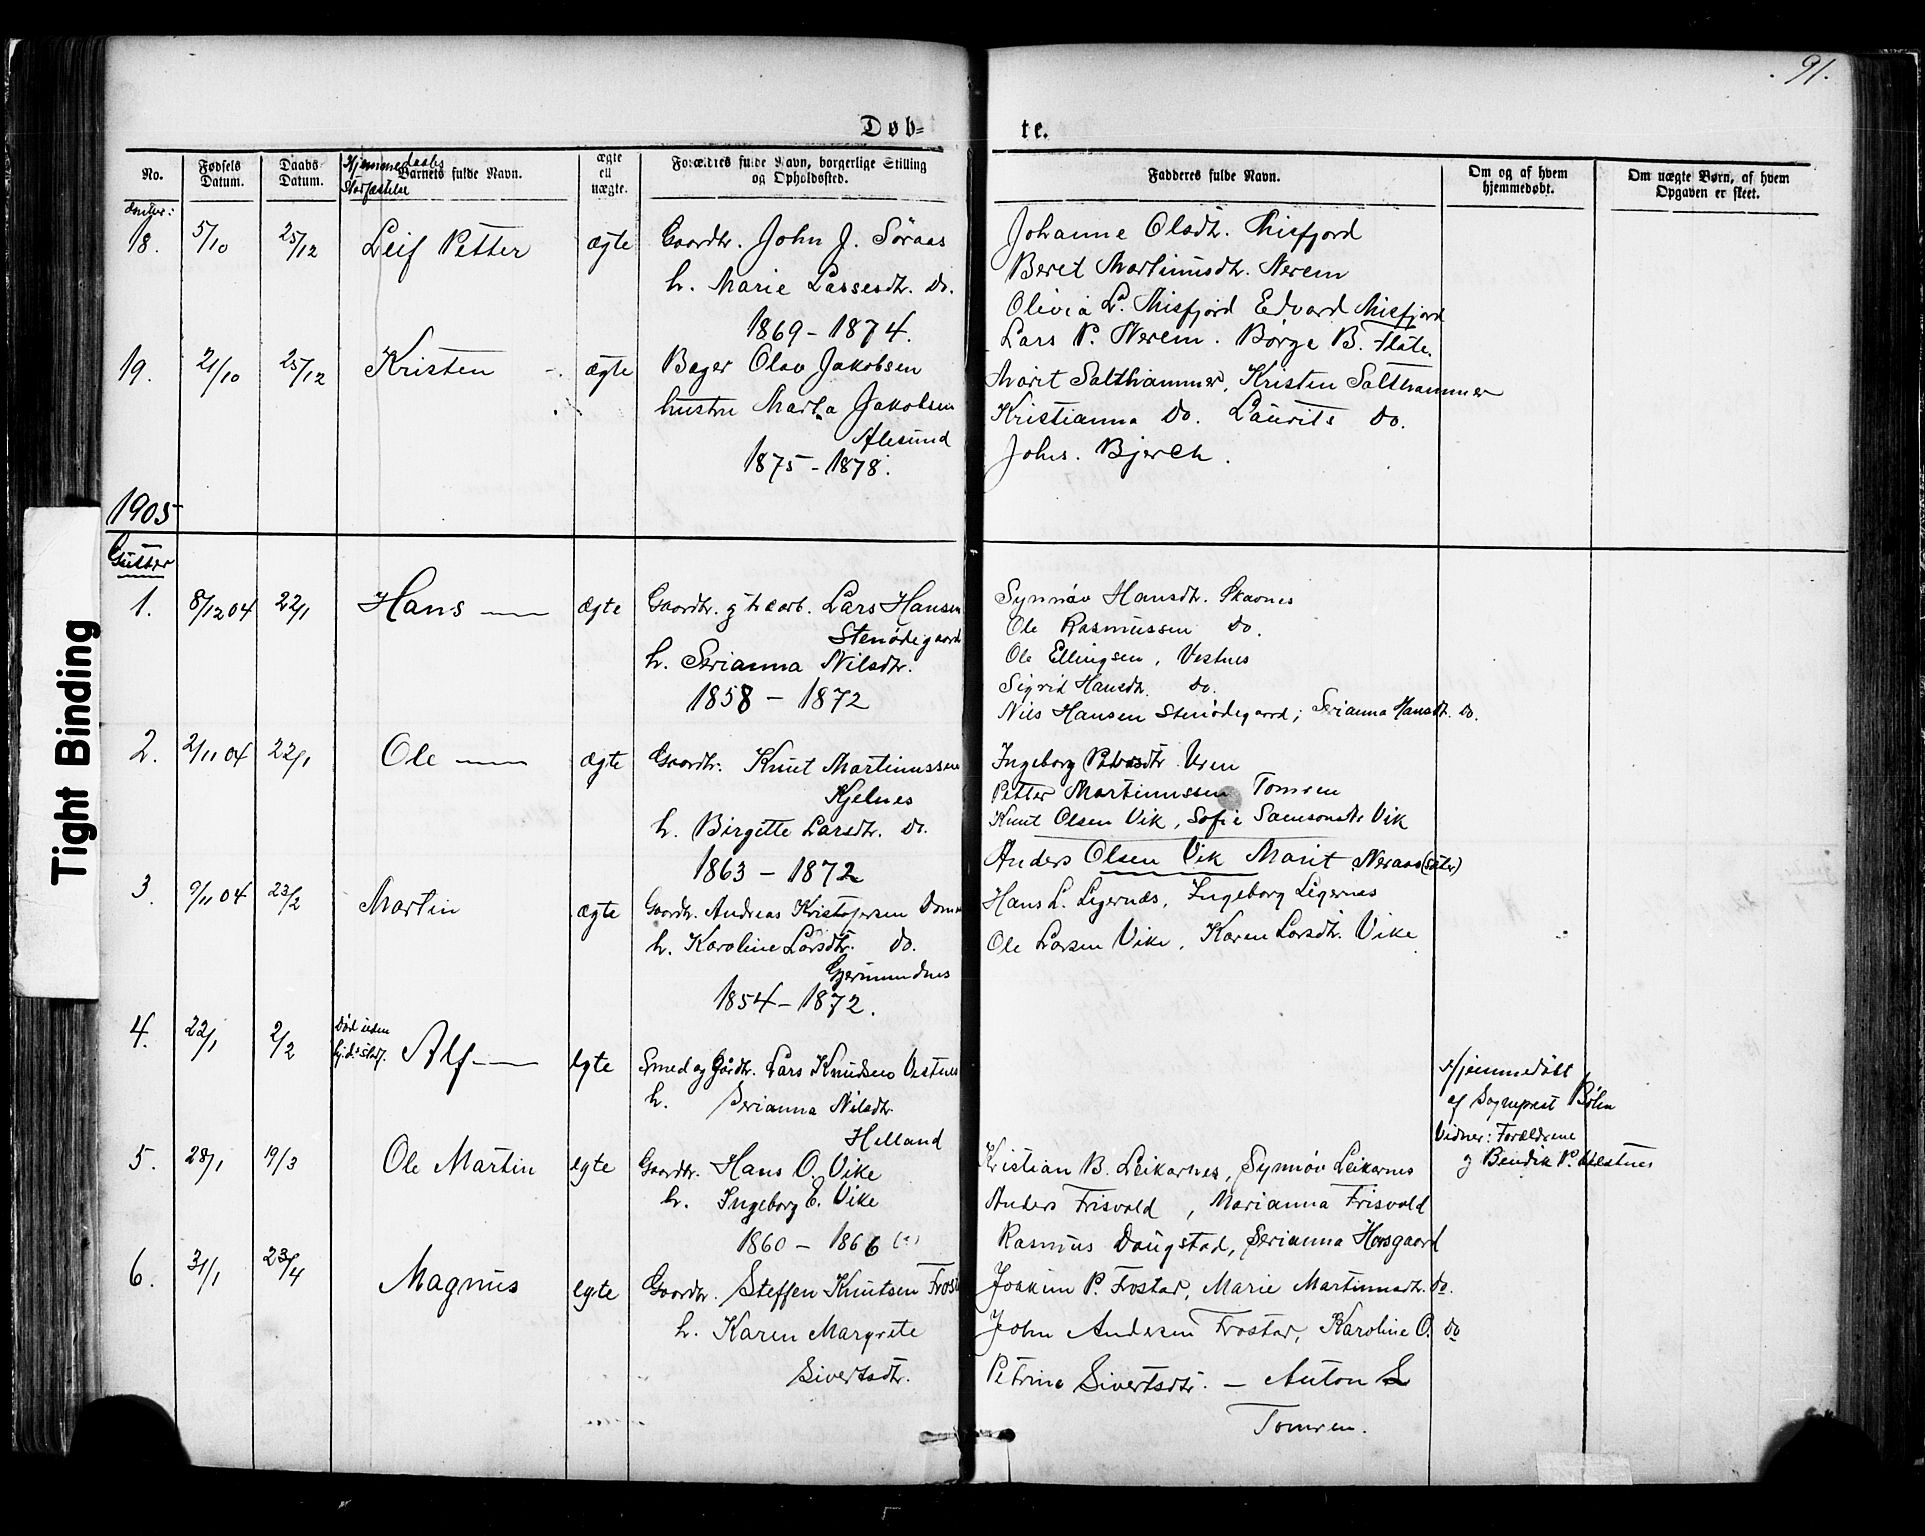 91.
Døb=
te.
No.
Fødsels Datum.
Daabs Datum.
Hjemmedaabs Stadfæstelse
Barnets fulde Navn.
ægte ell uægte.
Forældres fulde Navn, borgerlige Stilling og Opholdssted.
Fadderes fulde Navn.
Om og af hvem hjemmedøbt.
Om uægte Børn, af hvem Opgaven er skeet.
18. 5/10 25/12 Leif Petter ægte Gaardbr. John J. Søraas
h. Marie Lassesdtr. Do.
1869 - 1874.
Johanne Olsdtr. Misfjord
Beret Martinusdtr. Nerem
Olivia L. Misfjord Edvard Misfjord
Lars P. Nerem. Børge B. Flate.
19. 21/10 25/12 Kristen ægte Bager Olav Jakobsen
hustru Marta Jakobsen
Alesund
1875 - 1878.
Marit Salthammer, Kristen Salthammer
Kristianna Do. Laurits Do.
Johs. Bjerch.
1905
Gutter
1. 8/12 04 22/1 Hans ægte Gaardbr. g tr. arb. Lars Hansen
Stenødegaard
h. Serianna Nilsdtr.
1858 - 1872
Synnøv Hansdtr. Skaones
Ole Rasmussen Do.
Ole Ellingsen, Vestnes
Sigrid Hansdtr. Do.
Nils Hansen Stenødegaard; Serianna Hansdtr. Do.
2. 2/11 04 22/1 Ole ægte Gaardbr. Knut Martinussen
Kjelnes
h. Birgitte Larsdtr. Do.
1863 - 1872
Ingeborg Petersdtr Uren
Petter Martinussen Tomren
Knut Olsen Vik, Sofie Samsonsdtr Vik
Anders Olsen Vik Marit Neraas
3. 9/11 04 23/2 Martin ægte Gaardbr. Andreas Kristofersen
h. Karoline Larsdtr. Do.
Gjermundnes
1854 - 1872.
Hans L. Ligernæs, Ingeborg Ligernes
Ole Larsen Vike, Karen Larsdtr. Vike
4. 22/1 2/2 Død uden Alf egte Smed og Gårdbr. Lars Knudsen Vestnes
h. Serianna Nilsdtr.
Helland
Hjemmedøbt
af Sogneprest Bøhn
Vidner: Forældrene
g Bendik P. Vestnes
5. 28/1 19/3 Ole Martin egte Gaardbr. Hans O. Vike
h. Ingeborg E. Vike
1860 - 1866
Kristian B. Leikarnes, Synnøv Leikarnes
Anders Frisvold, Marianna Frisvold
Rasmus Dougstad, Serianna Horsgaard
6. 31/1 23/4 Magnus egte Gaardbr. Steffen Knutsen
h. Karen Margrete
Sivertsdtr.
Joakim P. Frostad, Marie Martinusdtr. Do.
John Andersen Frostad, Karoline O. Do
Petrine Sivertsdtr. - Anton S
Tomren.
Tight Binding